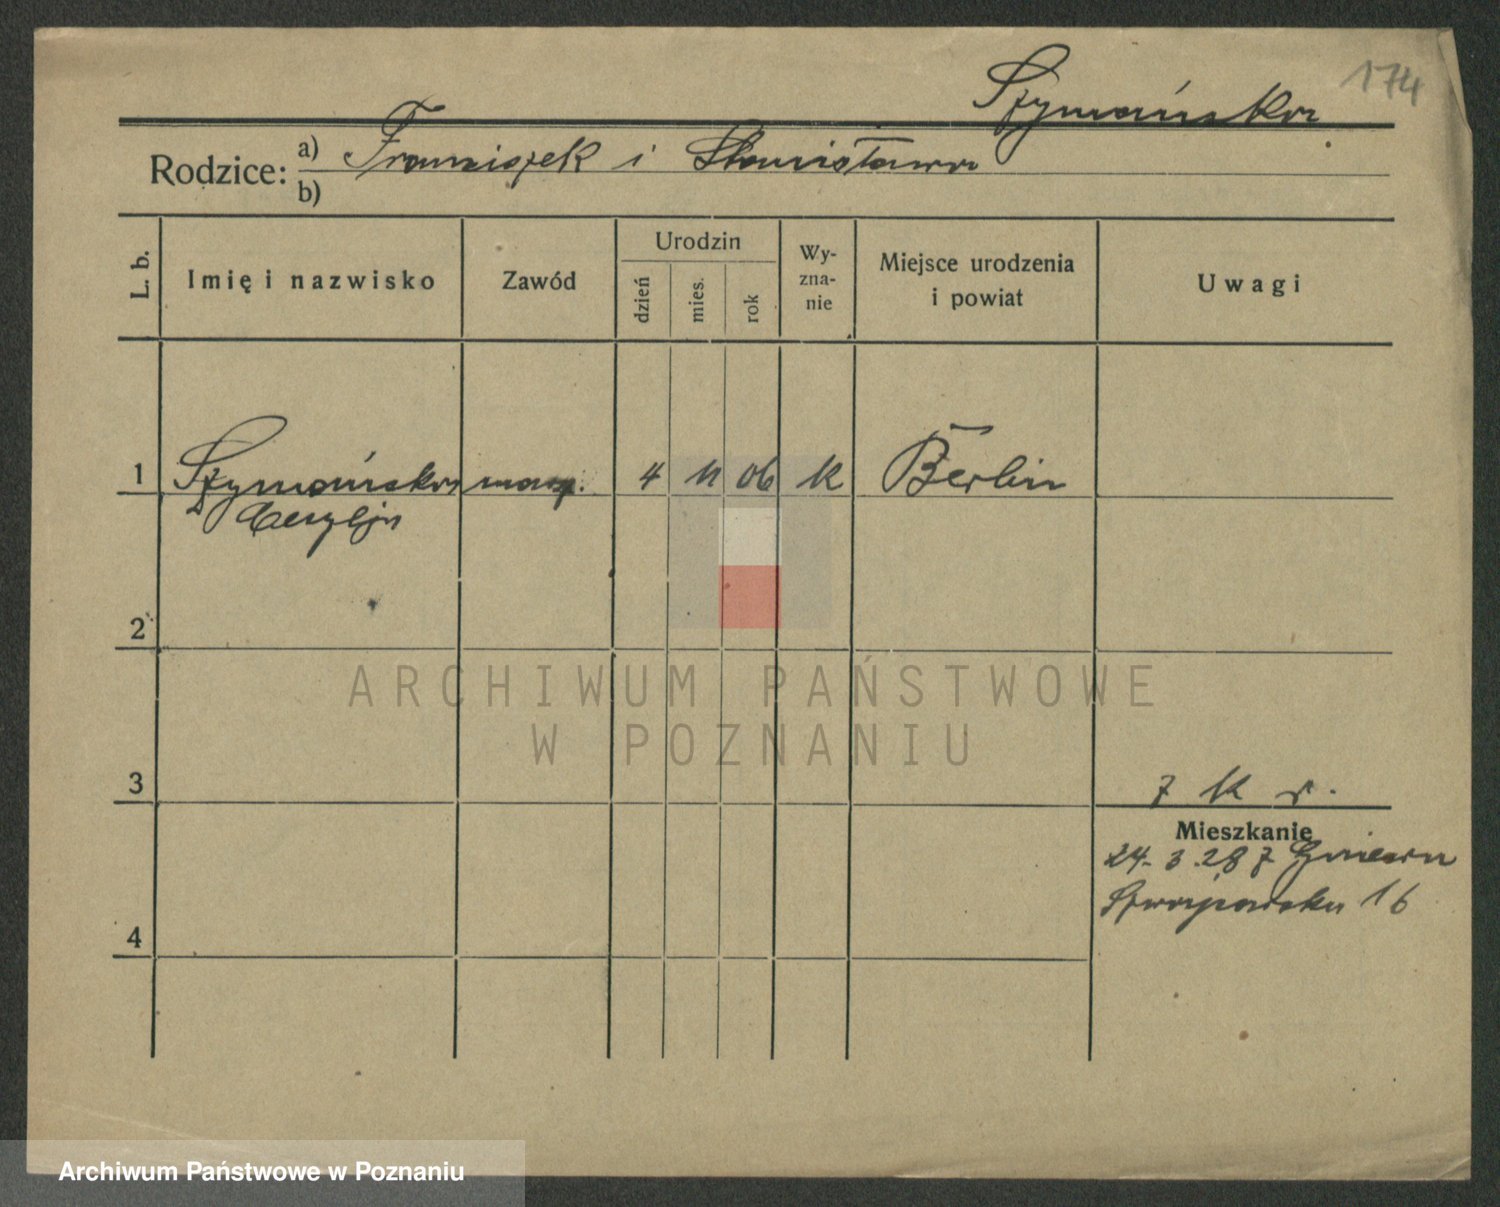 174
Szymańska
Rodzice: a) Franciszek i Stanisława
b)
L. b.
Imię i nazwisko
Zawód
Urodzin
dzień
mies.
rok
Wy-
zna-
nie
Miejsce urodzenia
i powiat
Uwagi
1 Szymańska 4 11 06 k Berlin
Cecylja
2
ARCHIWUM PAŃSTWOWE
W POZNANIU
3
7 k r.
Mieszkanie
24. 3. 28 z Gniezna
16
4
Archiwum Państwowe w Poznaniu